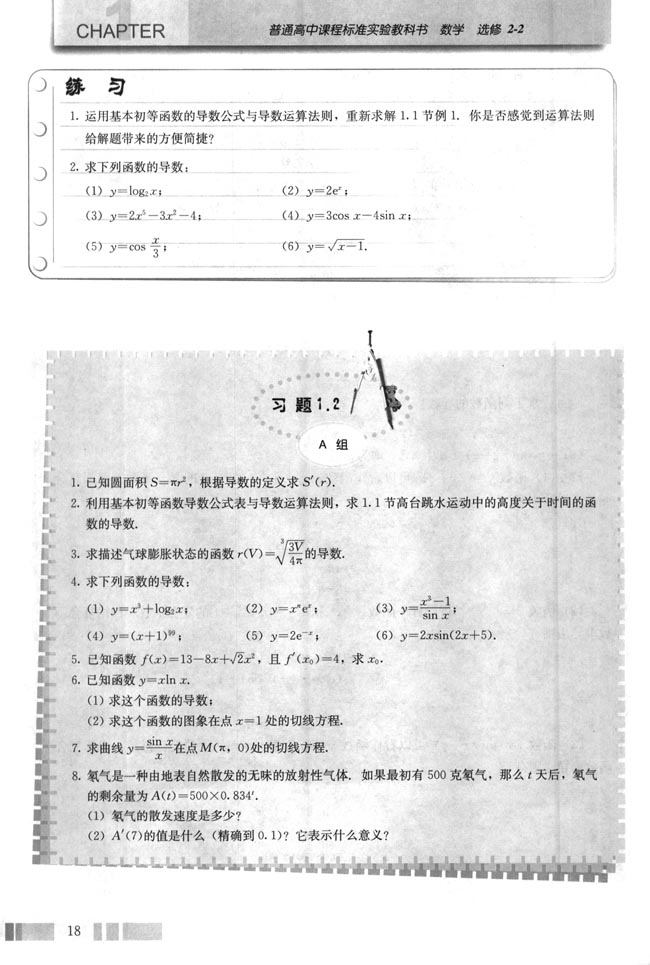 1
CHAPTER
普通高中课程标准实验教科书 数学 选修 2-2
练 习
1. 运用基本初等函数的导数公式与导数运算法则，重新求解 1.1 节例 1. 你是否感觉到运算法则
给解题带来的方便简捷?
2. 求下列函数的导数：
(1) y=log₂x; (2) y=2eˣ;
(3) y=2x⁵-3x²-4; (4) y=3cos x-4sin x;
(5) y=cos x/3; (6) y=√(x-1).
习 题 1.2
A 组
1. 已知圆面积 S=πr²，根据导数的定义求 S′(r).
2. 利用基本初等函数导数公式表与导数运算法则，求 1.1 节高台跳水运动中的高度关于时间的函
数的导数.
3. 求描述气球膨胀状态的函数 r(V)=∛(3V/4π) 的导数.
4. 求下列函数的导数：
(1) y=x³+log₂x; (2) y=xⁿeˣ; (3) y=(x³-1)/sin x;
(4) y=(x+1)⁹⁹; (5) y=2e⁻ˣ; (6) y=2xsin(2x+5).
5. 已知函数 f(x)=13-8x+√2x²，且 f′(x₀)=4，求 x₀.
6. 已知函数 y=xln x.
(1) 求这个函数的导数;
(2) 求这个函数的图象在点 x=1 处的切线方程.
7. 求曲线 y=sin x/x 在点 M(π, 0)处的切线方程.
8. 氡气是一种由地表自然散发的无味的放射性气体. 如果最初有 500 克氡气，那么 t 天后，氡气
的剩余量为 A(t)=500×0.834ᵗ.
(1) 氡气的散发速度是多少?
(2) A′(7)的值是什么（精确到 0.1）? 它表示什么意义?
18